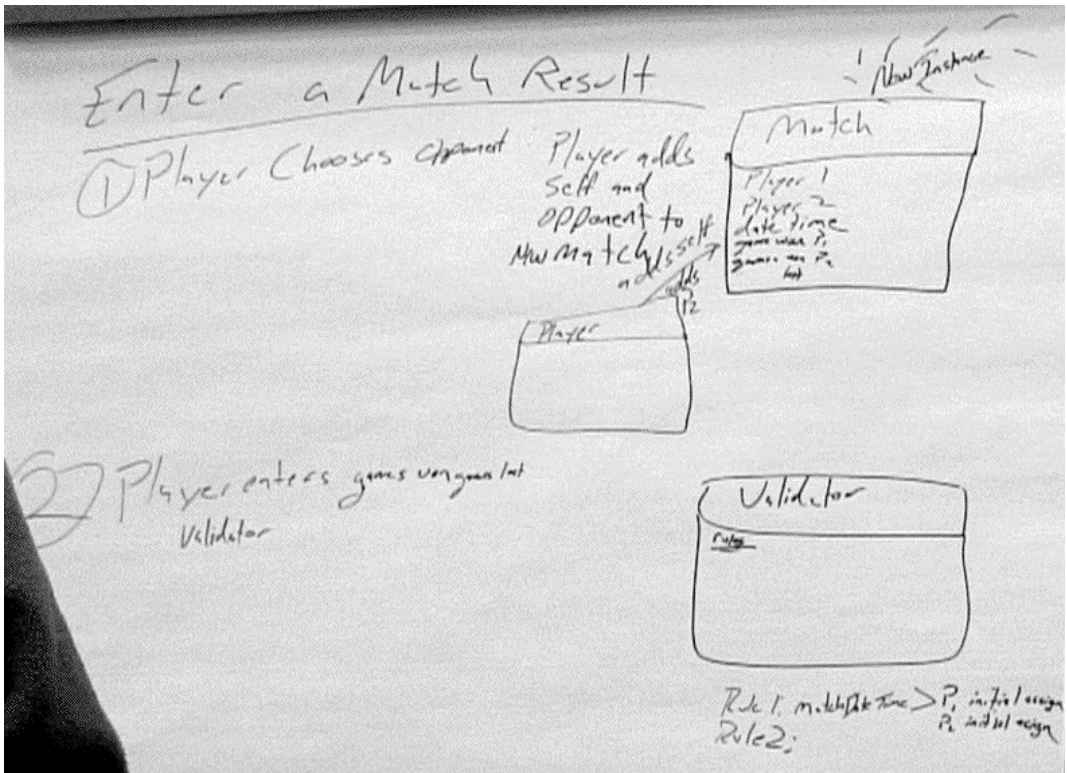 Enter a Match Result
New Instance
① Player Chooses opponent
Player adds
Self and
opponent to
New Match
adds self
adds
P2
Match
Player 1
Player 2
date time
games won P1
games won P2
Player
② Player enters games won games lost
Validator
Validator
rules
Rule 1: match Date Time > P1 initial assign
P2 initial assign
Rule 2: